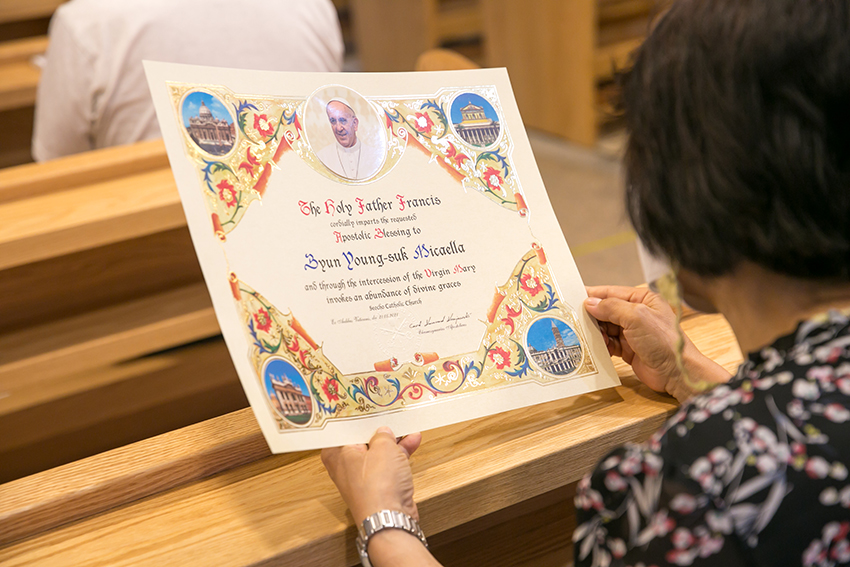 The Holy Father Francis
cordially imparts the requested
Apostolic Blessing to
Byun Young-suk Micaella
and through the intercession of the Virgin Mary
invokes an abundance of divine graces
Seocho Catholic Church